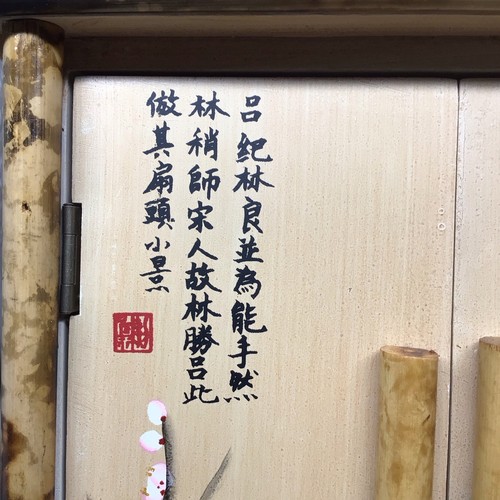 呂紀林良並為能手然
林稍師宋人故林勝呂此
倣其扇頭小景